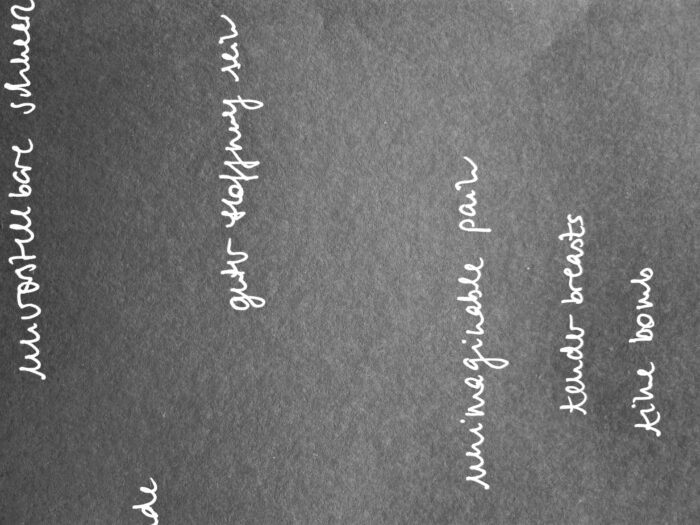 unvorstellbare
de
guter Hoffnung sein
unimaginable pain
tender breasts
time bomb